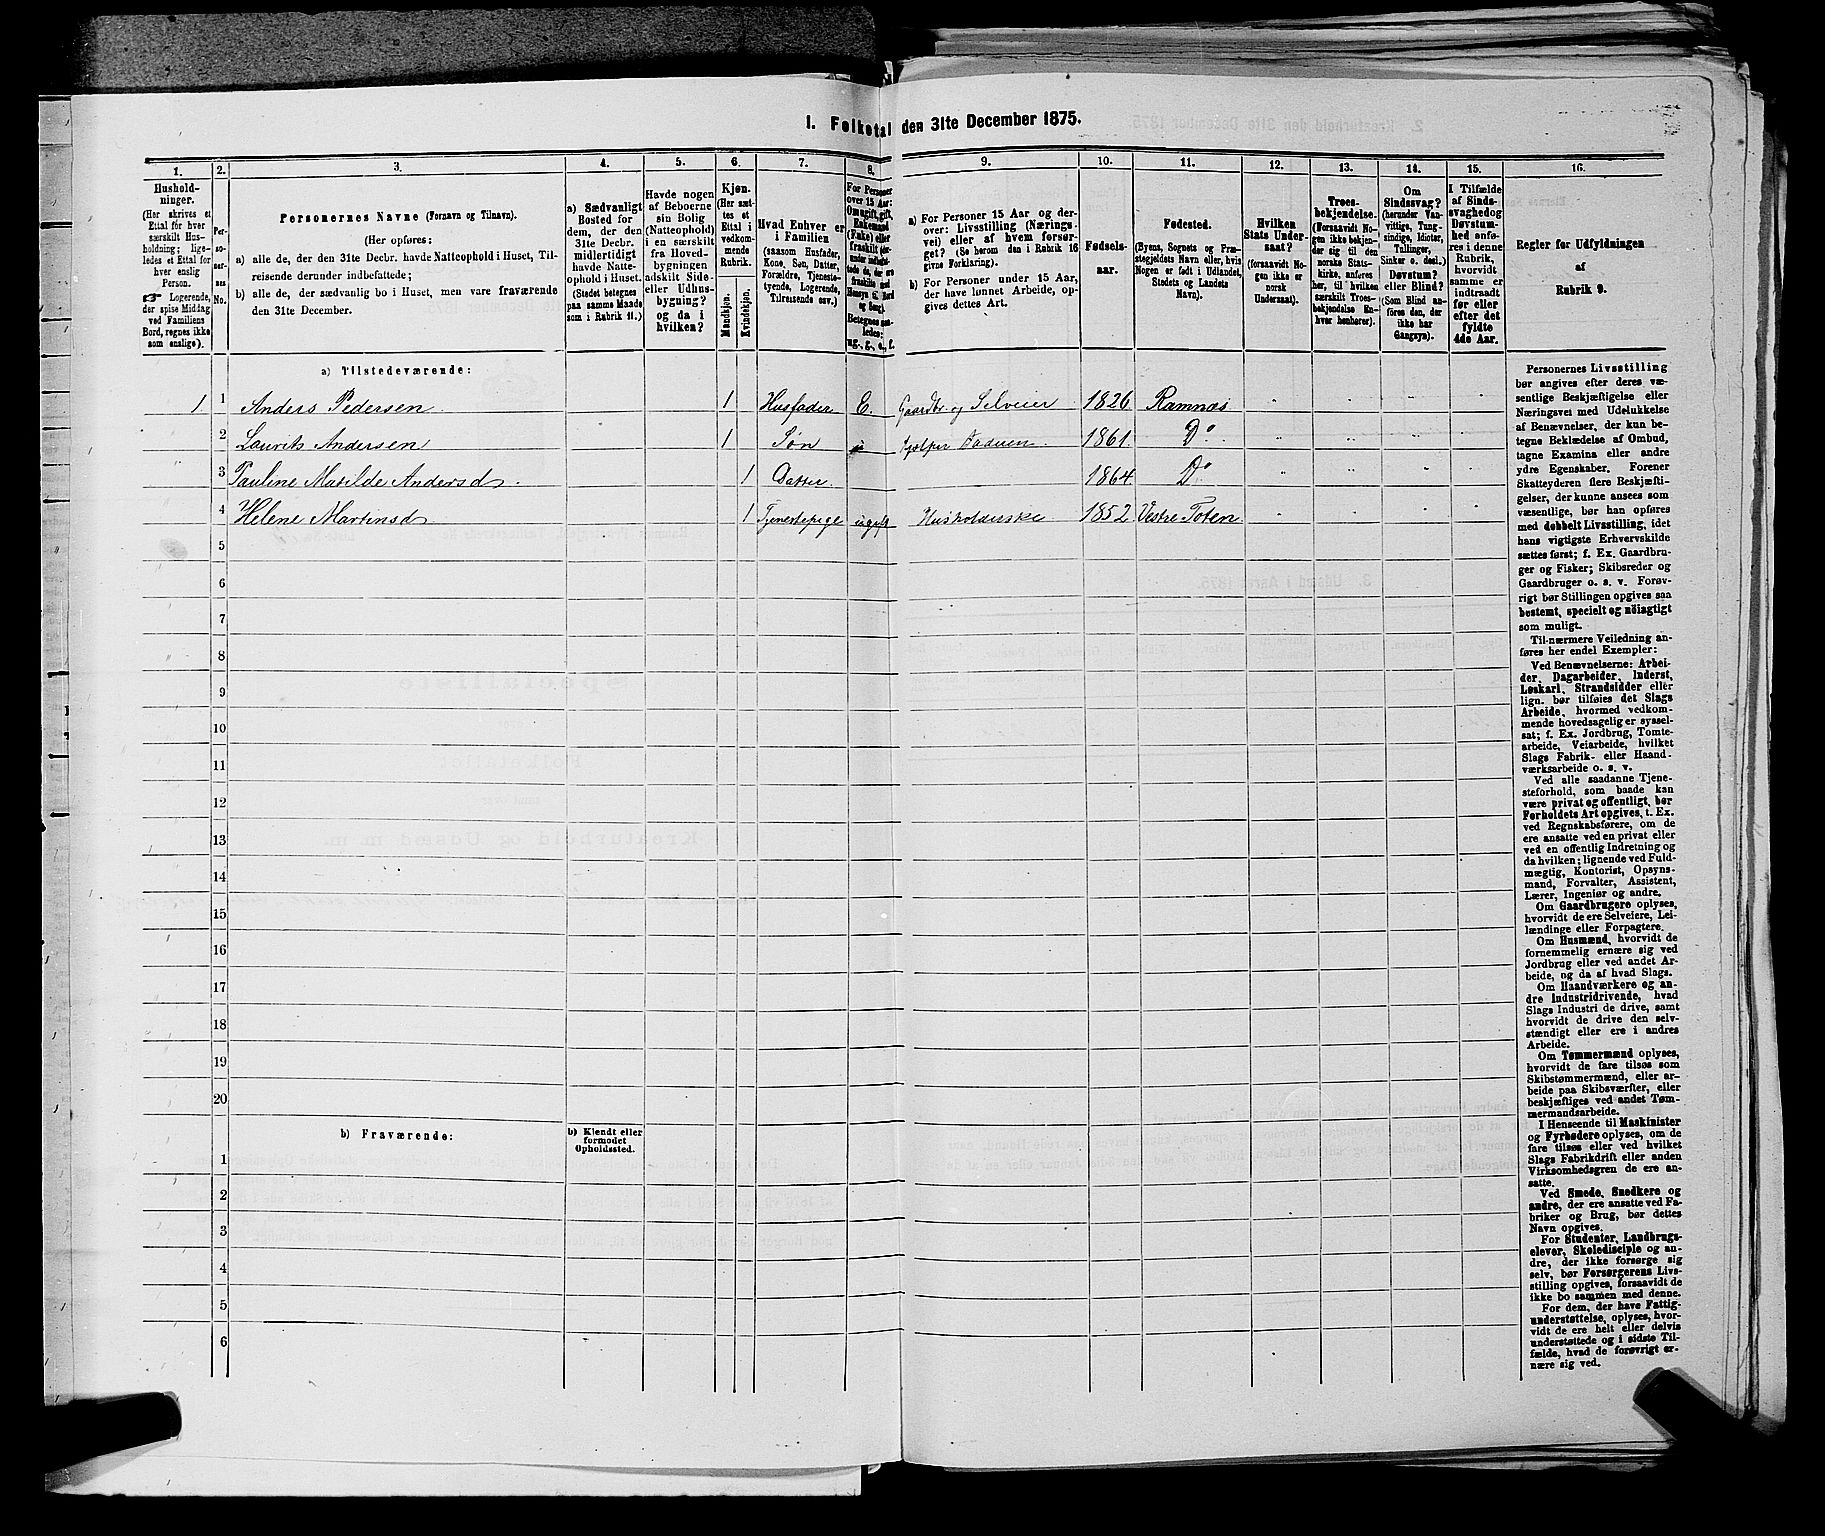 1. Folketal den 31te December 1875.
1. 2. 3. 4. 5. 6. 7. 8. 9. 10. 11. 12. 13. 14. 15. 16.
Hushold-
ninger.
(Her skrives et
Ettal for hver
særskilt Hus-
holdning; lige-
ledes et Ettal for
hver enslig
Person.
☞ Logerende,
der spise Middag
ved Familiens
Bord, regnes ikke
som enslige).
Per-
so-
ner-
nes
No.
Personernes Navne (Fornavn og Tilnavn).
(Her opføres:
a) alle de, der den 31te Decbr. havde Natteophold i Huset, Til-
reisende derunder indbefattede;
b) alle de, der sædvanlig bo i Huset, men vare fraværende
den 31te December.
a) Sædvanligt
Bosted for
dem, der den
31te Decbr.
midlertidigt
havde Natte-
ophold i Huset.
(Stedet betegnes
paa samme Maade
som i Rubrik 11.)
Havde nogen
af Beboerne
sin Bolig
(Natteophold)
i en særskilt
fra Hoved-
bygningen
adskilt Side-
eller Udhus-
bygning?
og da i
hvilken?
Kjøn.
(Her sæt-
tes et
Ettal i
vedkom-
mende
Rubrik.
Mandkjøn.
Kvindekjøn.
Hvad Enhver er
i Familien
(saasom Husfader,
Kone, Søn, Datter,
Forældre, Tjeneste-
tyende, Logerende,
Tilreisende osv.)
For Personer
over 15 Aar:
Om ugift, gift,
Enkemand
(Enke) eller
fraskilt
Betegnes saa-
ledes:
ug., g., e., f.
a) For Personer 15 Aar og der-
over: Livsstilling (Nærings-
vei) eller af hvem forsør-
get? (Se herom den i Rubrik 16
givne Forklaring).
b) For Personer under 15 Aar,
der have lønnet Arbeide, op-
gives dettes Art.
Fødsels-
aar.
Fødested.
(Byens, Sognets og Præ-
stegjeldets Navn eller, hvis
Nogen er født i Udlandet,
Stedets og Landets
Navn).
Hvilken
Stats Under-
saat?
(forsaavidt No-
gen ikke er
norsk
Undersaat).
Troes-
bekjendelse.
(Forsaavidt No-
gen ikke bekjen-
der sig til den
norske Stats-
kirke, anføres
her, til hvilken
særskilt Troes-
bekjendelse En-
hver henhører).
Om
Sindssvag?
(herunder Van-
vittige, Tung-
sindige, Idioter,
Tullinger,
Sinker o. desl.)
Døvstum?
eller Blind?
(Som Blind an-
føres den, der
ikke har
Gangsyn).
I Tilfælde
af Sinds-
svaghed og
Døvstum-
hed anfø-
res i denne
Rubrik,
hvorvidt
samme er
indtraadt
før eller
efter det
fyldte
4de Aar.
Regler for Udfyldningen
af
Rubrik 9.
a) Tilstedeværende:
1 1 Anders Pedersen 1 Husfader E. Gaardbr. og Selveier 1826 Ramnæs " " " "
2 Laurits Andersen 1 Søn Hjælper Faderen 1861 Do " " " "
3 Pauline Matilde Andersd. 1 Datter 1864 Do " " " "
4 Helene Martinsd. 1 Tjenestepige ugift Husholderske 1852 Vestre Toten " " " "
5
6
7
8
9
10
11
12
13
14
15
16
17
18
19
20
b) Fraværende:
b) Kjendt eller
formodet
Opholdssted.
1
2
3
4
5
6
Personernes Livsstilling
bør angives efter deres væ-
sentlige Beskjæftigelse eller
Næringsvei med Udelukkelse
af Benævnelser, der kun be-
tegne Beklædelse af Ombud,
tagne Examina eller andre
ydre Egenskaber. Forener
Skatteyderen flere Beskjæfti-
gelser, der kunne ansees som
væsentlige, bør han opføres
med dobbelt Livsstilling, idet
hans vigtigste Erhvervskilde
sættes først; f. Ex. Gaardbru-
ger og Fisker; Skibsreder og
Gaardbruger o. s. v. Forøv-
rigt bør Stillingen opgives saa
bestemt, specielt og nöiagtigt
som muligt.
Til nærmere Veiledning an-
føres her endel Exempler:
Ved Benævnelserne: Arbei-
der, Dagarbeider, Inderst,
Løskarl, Strandsidder eller
lign. bør tilføies det Slags
Arbeide, hvormed vedkom-
mende hovedsagelig er syssel-
sat; f. Ex. Jordbrug, Tomte-
arbeide, Veiarbeide, hvilket
Slags Fabrik- eller Haand-
værksarbeide o. s. v.
Ved alle saadanne Tjene-
steforhold, som baade kan
være privat og offentligt, bør
Forholdets Art opgives, t. Ex.
ved Regnskabsførere, om de
ere ansatte ved en privat eller
ved en offentlig Indretning og
da hvilken; lignende ved Fuld-
mægtig, Kontorist, Opsyns-
mand, Forvalter, Assistent,
Lærer, Ingeniør og andre.
Om Gaardbrugere oplyses,
hvorvidt de ere Selveiere, Lei-
lændinge eller Forpagtere.
Om Husmænd, hvorvidt de
fornemmelig ernære sig ved
Jordbrug eller ved andet Ar-
beide, og da af hvad Slags.
Om Haandværkere og an-
dre Industridrivende, hvad
Slags Industri de drive, samt
hvorvidt de drive den selv-
stændigt eller ere i andres
Arbeide.
Om Tømmermænd oplyses,
hvorvidt de fare tilsøs som
Skibstømmermænd, eller ar-
beide paa Skibsværfter, eller
beskjæftiges ved andet Tøm-
mermandsarbeide.
I Henseende til Maskinister
og Fyrbødere oplyses, om de
fare tilsøs eller ved hvilket
Slags Fabrikdrift eller anden
Virksomhedsgren de ere an-
satte.
Ved Smede, Snedkere og
andre, der ere ansatte ved Fa-
briker og Brug, bør dettes
Navn opgives.
For Studenter, Landbrugs-
elever, Skoledisciple og an-
dre, der ikke forsørge sig
selv, bør Forsørgerens Livs-
stilling opgives, forsaavidt de
ikke bo sammen med denne.
For dem, der have Fattig-
understøttelse, oplyses, hvor-
vidt de ere helt eller delvis
understøttede og i sidste Til-
fælde, hvad de forøvrigt er-
nære sig ved.